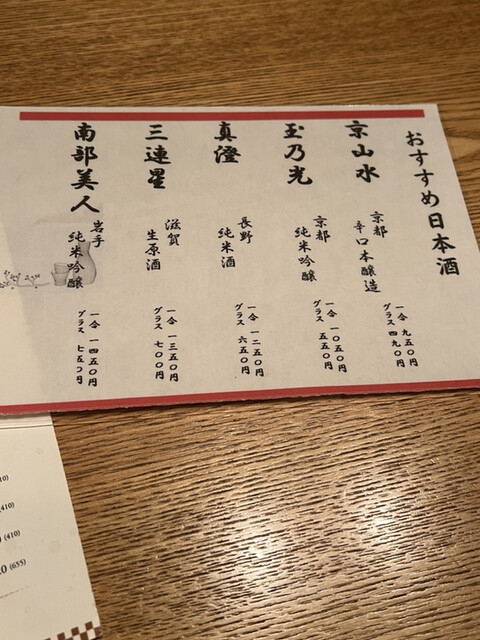 おすすめ日本酒
京山水
京都
辛口本醸造
一合 九五〇円
グラス 四九〇円
玉乃光
京都
純米吟醸
一合 一〇五〇円
グラス 五五〇円
真澄
長野
純米酒
一合 一二五〇円
グラス 六五〇円
三連星
滋賀
生原酒
一合 一三五〇円
グラス 七〇〇円
南部美人
岩手
純米吟醸
一合 一四五〇円
グラス 七五〇円
(410)
(410)
0 (655)